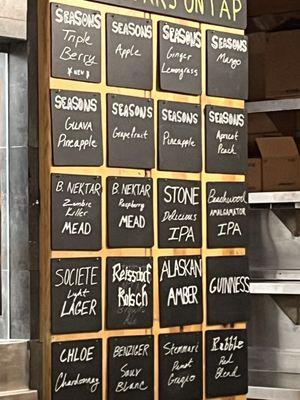 ON TAP
SEASONS
Triple
Berry
NEW
SEASONS
Apple
SEASONS
Ginger
Lemongrass
SEASONS
Mango
SEASONS
Guava
Pineapple
SEASONS
Grapefruit
SEASONS
Pineapple
SEASONS
Apricot
Peach
B. NEKTAR
Zombie
Killer
MEAD
B. NEKTAR
Raspberry
MEAD
STONE
Delicious
IPA
Beachwood
AMALGAMATOR
IPA
SOCIETE
Light
LAGER
Reissdorf
Kolsch
ALASKAN
AMBER
GUINNESS
CHLOE
Chardonnay
BENZIGER
Sauv
Blanc
Stemmari
Pinot
Grigio
Rabble
Red
Blend